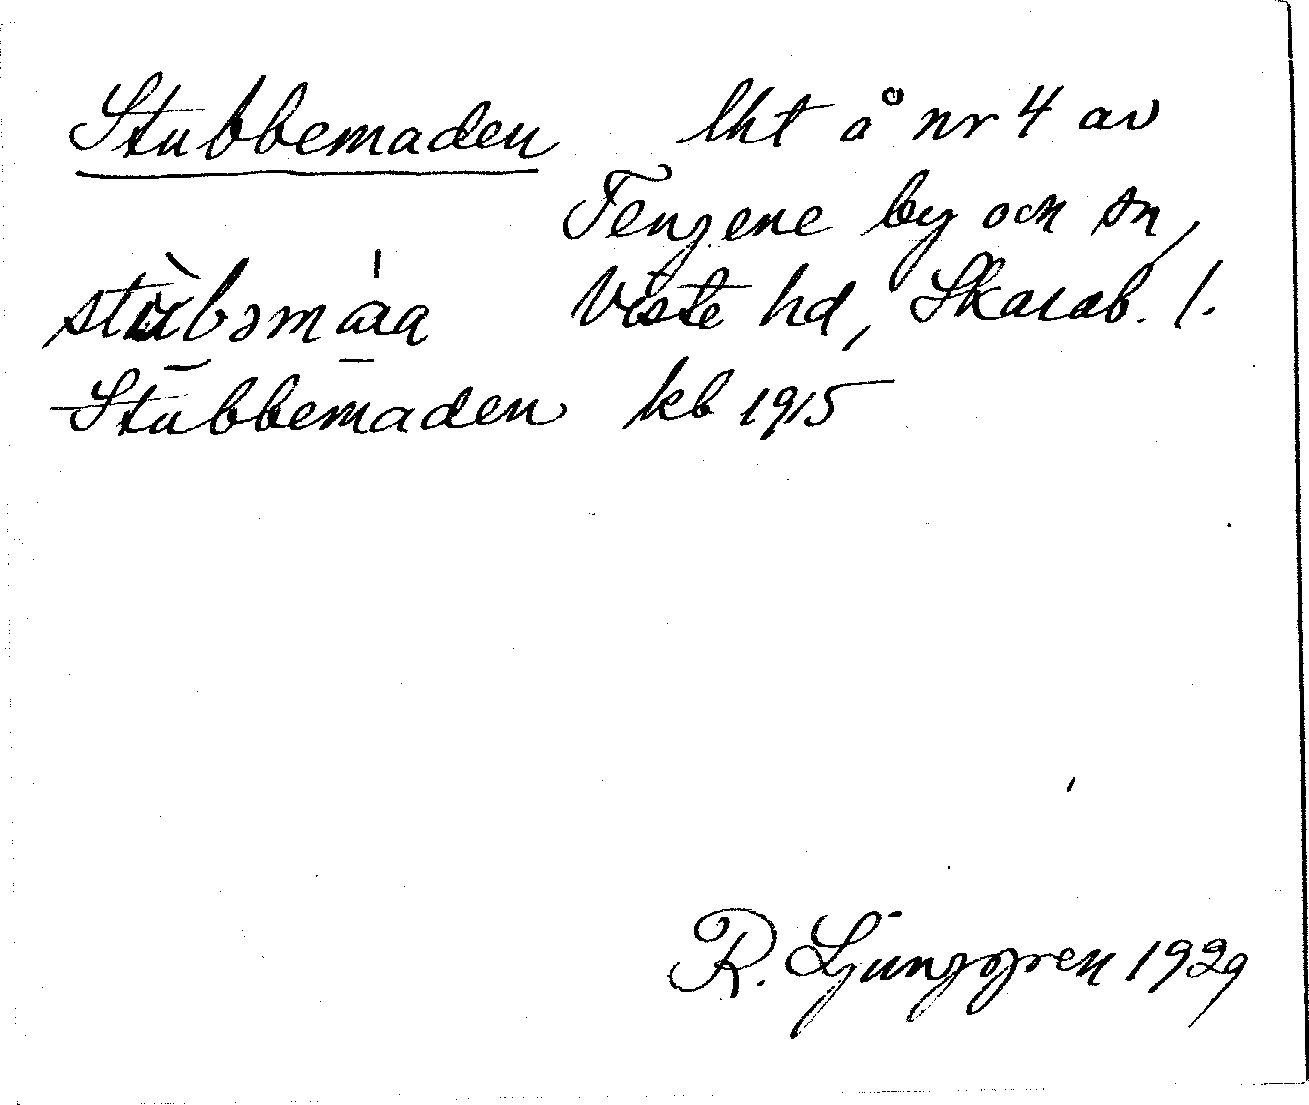 Stubbemaden lht å nr 4 av
Fengene by och sn,
stùbəmáa Viste hd, Skarab. l.
Stubbemaden kb 1915
R. Ljunggren 1929